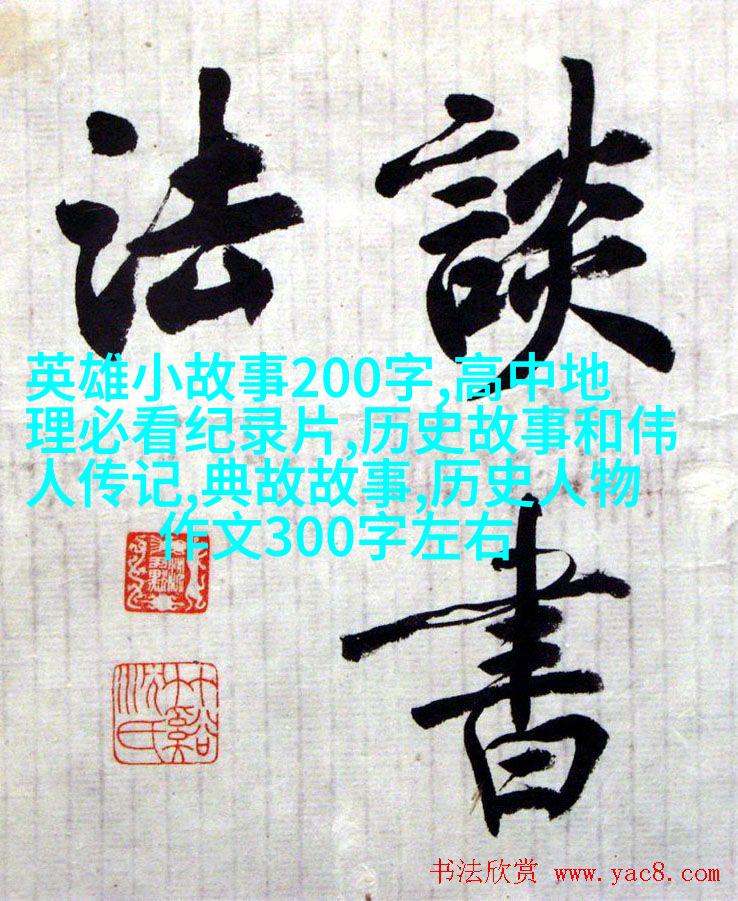 談書
法
英雄小故事200字,高中地
理必看纪录片,历史故事和伟
人传记,典故故事,历史人物
作文300字左右
书法欣赏 www.yac8.com